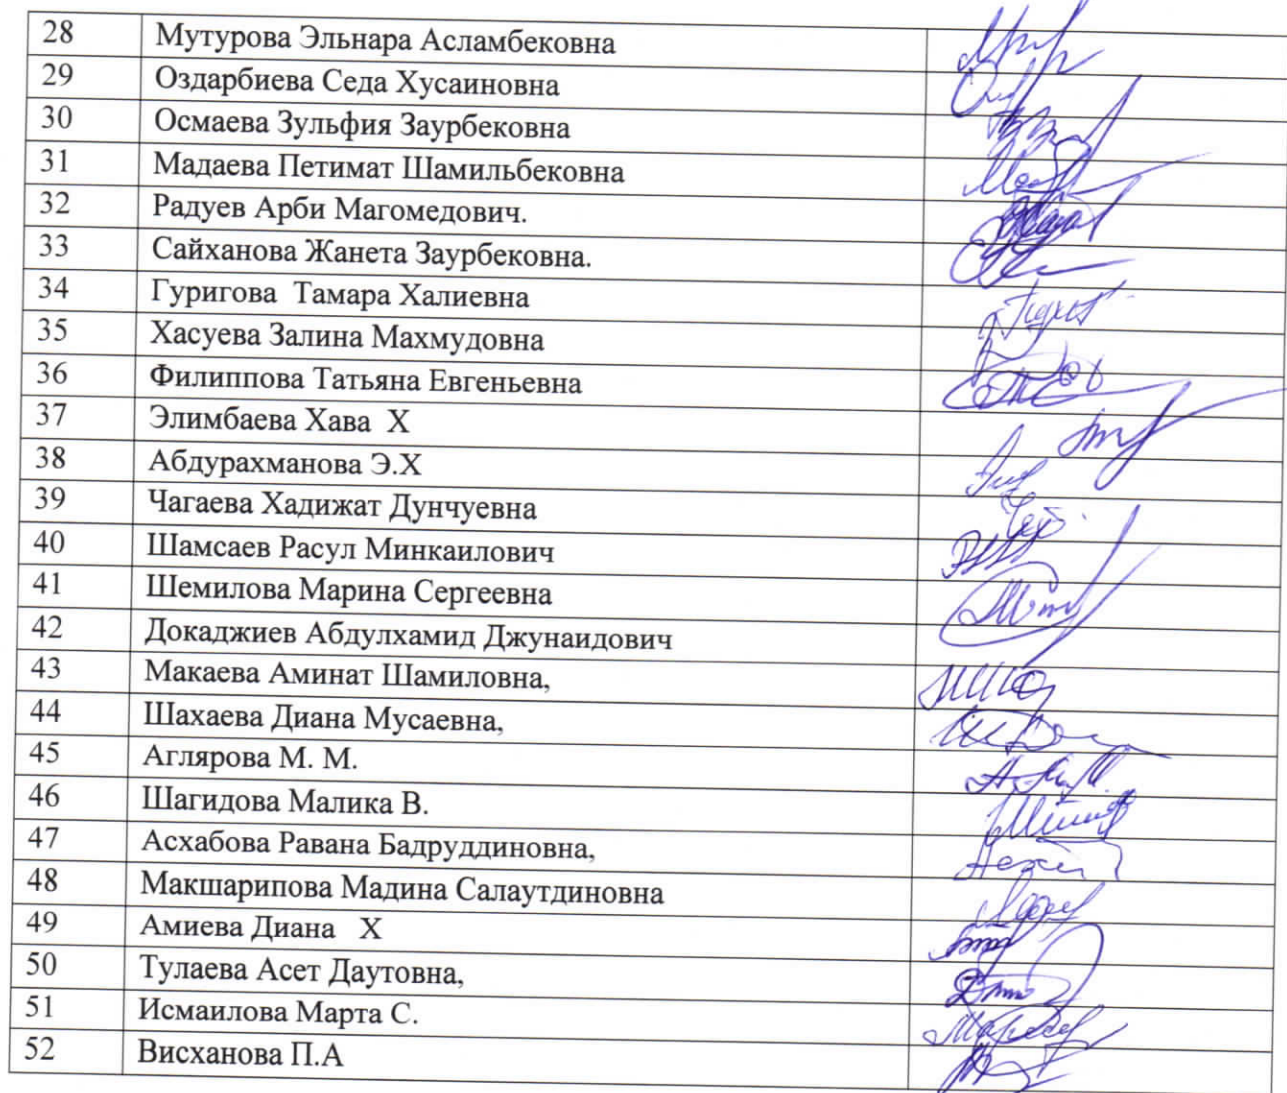 28 Мутурова Эльнара Асламбековна
29 Оздарбиева Седа Хусаиновна
30 Осмаева Зульфия Заурбековна
31 Мадаева Петимат Шамильбековна
32 Радуев Арби Магомедович.
33 Сайханова Жанета Заурбековна.
34 Гуригова  Тамара Халиевна
35 Хасуева Залина Махмудовна
36 Филиппова Татьяна Евгеньевна
37 Элимбаева Хава  Х
38 Абдурахманова Э.Х
39 Чагаева Хадижат Дунчуевна
40 Шамсаев Расул Минкаилович
41 Шемилова Марина Сергеевна
42 Докаджиев Абдулхамид Джунаидович
43 Макаева Аминат Шамиловна,
44 Шахаева Диана Мусаевна,
45 Аглярова М. М.
46 Шагидова Малика В.
47 Асхабова Равана Бадруддиновна,
48 Макшарипова Мадина Салаутдиновна
49 Амиева Диана   Х
50 Тулаева Асет Даутовна,
51 Исмаилова Марта С.
52 Висханова П.А